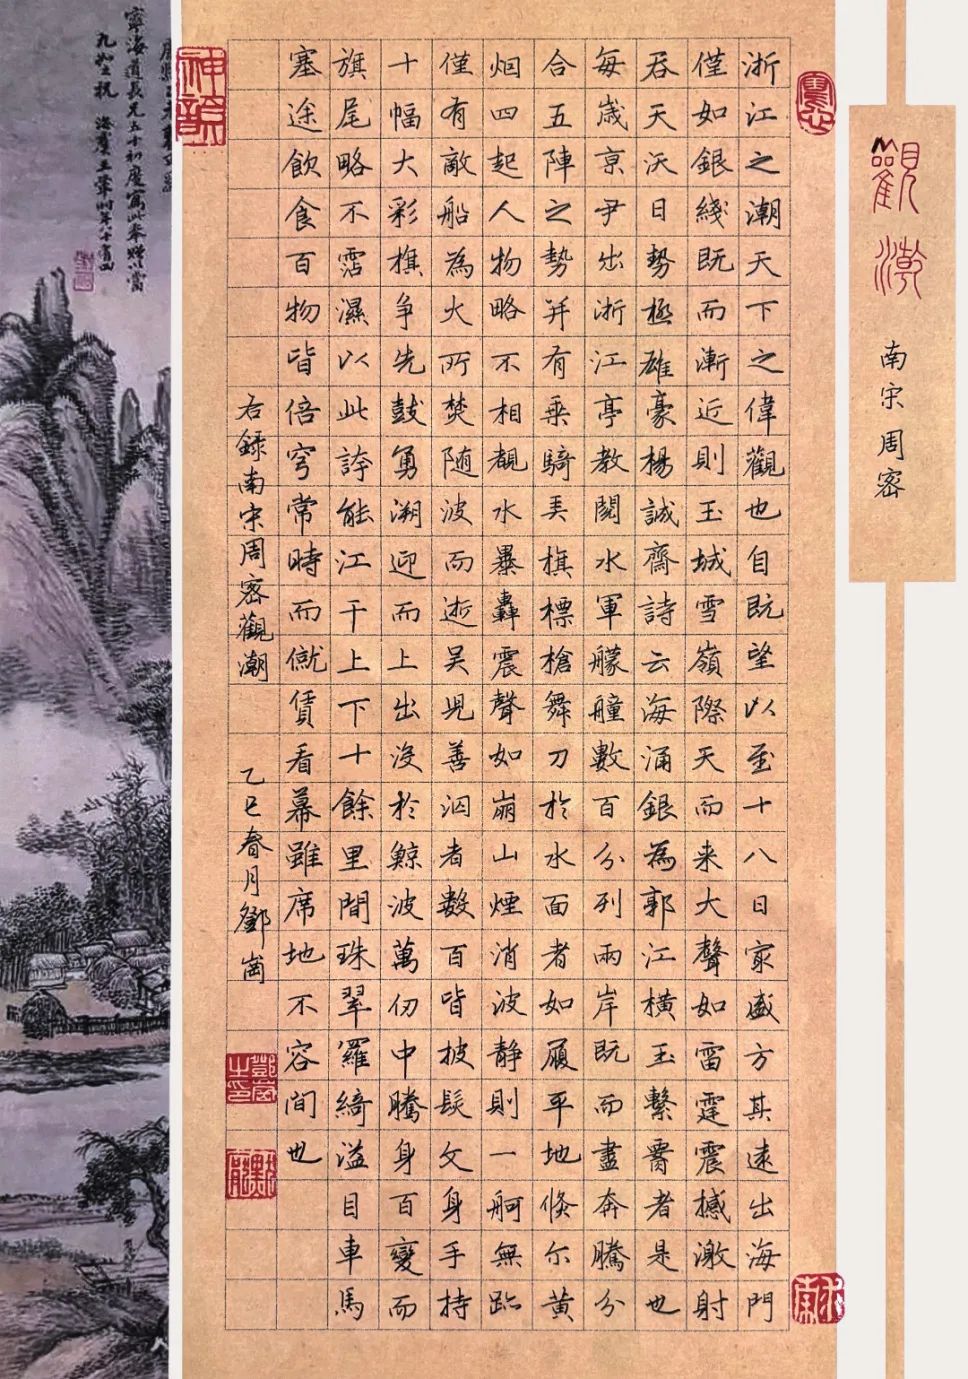 觀潮
南宋周密
浙江之潮天下之偉觀也自既望以至十八日冣盛方其遠出海門
僅如銀綫既而漸近則玉城雪嶺際天而来大聲如雷霆震撼激射
吞天沃日勢極雄豪楊誠齋詩云海涌銀為郭江橫玉繫者是也
每歳京尹出浙江亭教閱水軍艨艟數百分列兩岸既而盡奔騰分
合五陣之勢并有乗騎弄旗標槍舞刀於水面者如履平地倏尔黄
烟四起人物略不相覩水暴轟震聲如崩山煙消波静則一舸無跡
僅有敵船為火所焚随波而逝吴児善泅者数百皆披髮文身手持
十幅大彩旗争先鼓勇溯迎而上出没於鯨波萬仞中騰身百變而
旗尾略不霑濕以此誇能江干上下十餘里間珠翠羅綺溢目車馬
塞途飲食百物皆倍穹常時而僦賃看幕雖席地不容间也
右録南宋周密觀潮 乙巳春月鄧崗
神韻
鄧崗之印
寧海道長兄五十初度寫此奉贈以當
九如之祝 海虞王翬時年八十有四